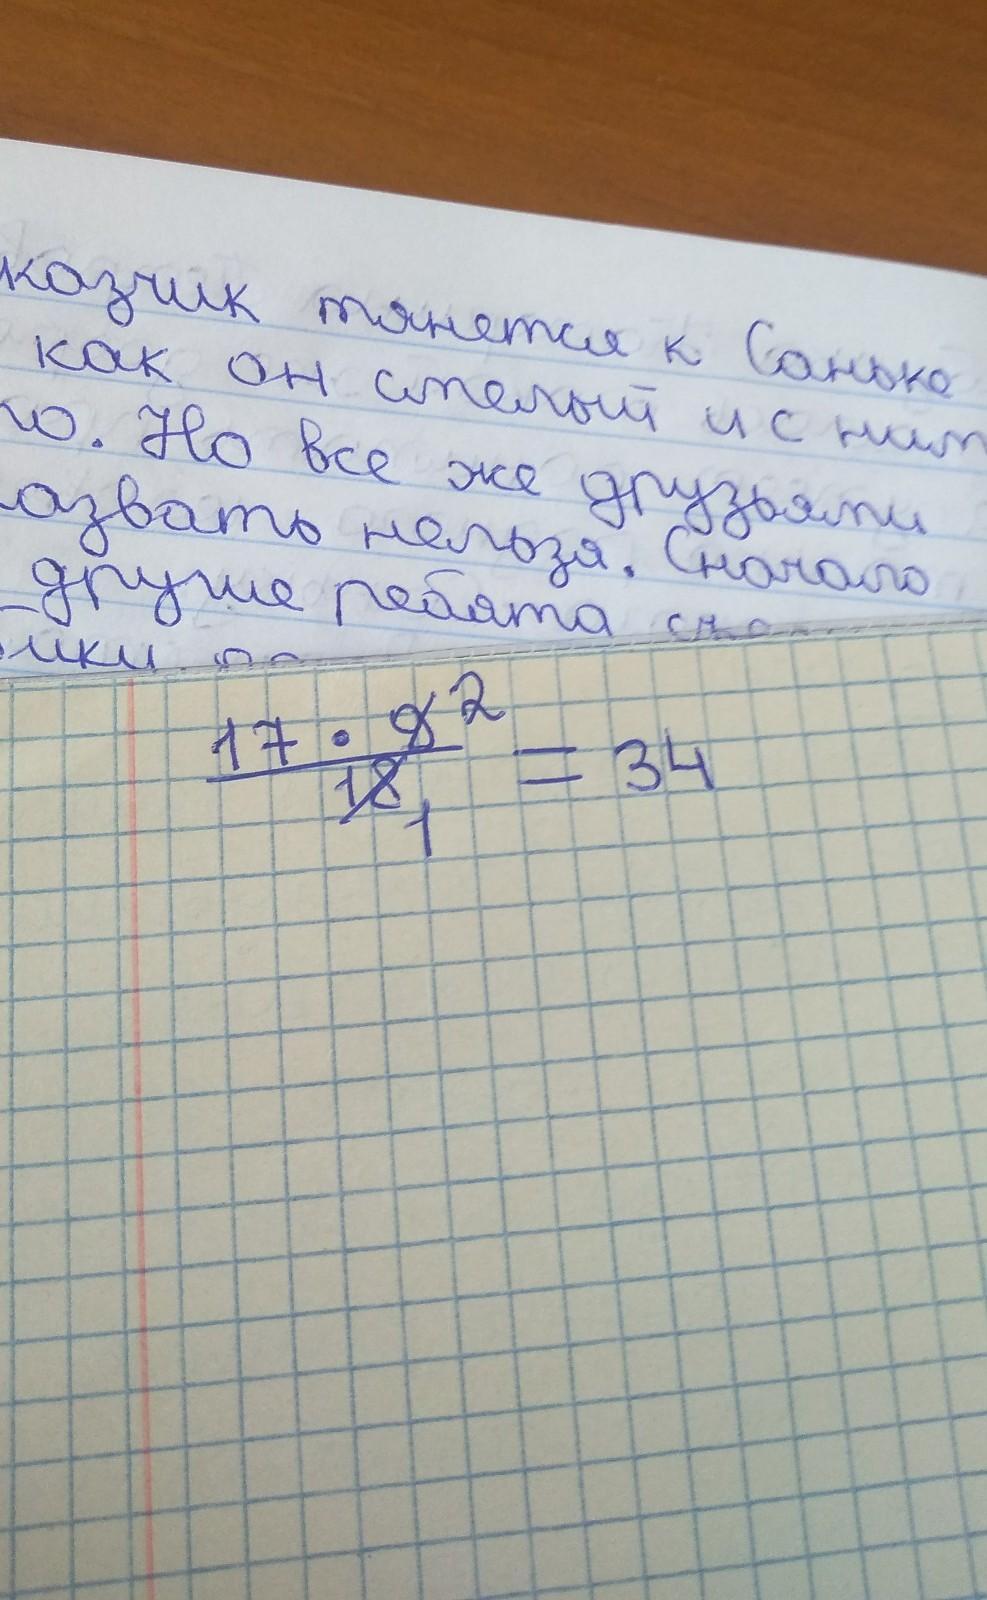 казчик тянется к Санько
как он смелый и с ним
го. Но все же друзьями
назвать нельзя. Сначало
другие ребята
17 · 9 2
18 1
= 34